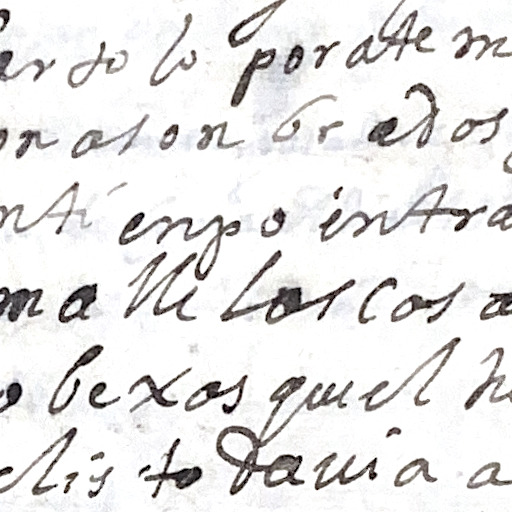 er to lo por ate m
on asonbrados
nti enpo intra
ma lle las cos a
o bexas quel h
elis todauia a